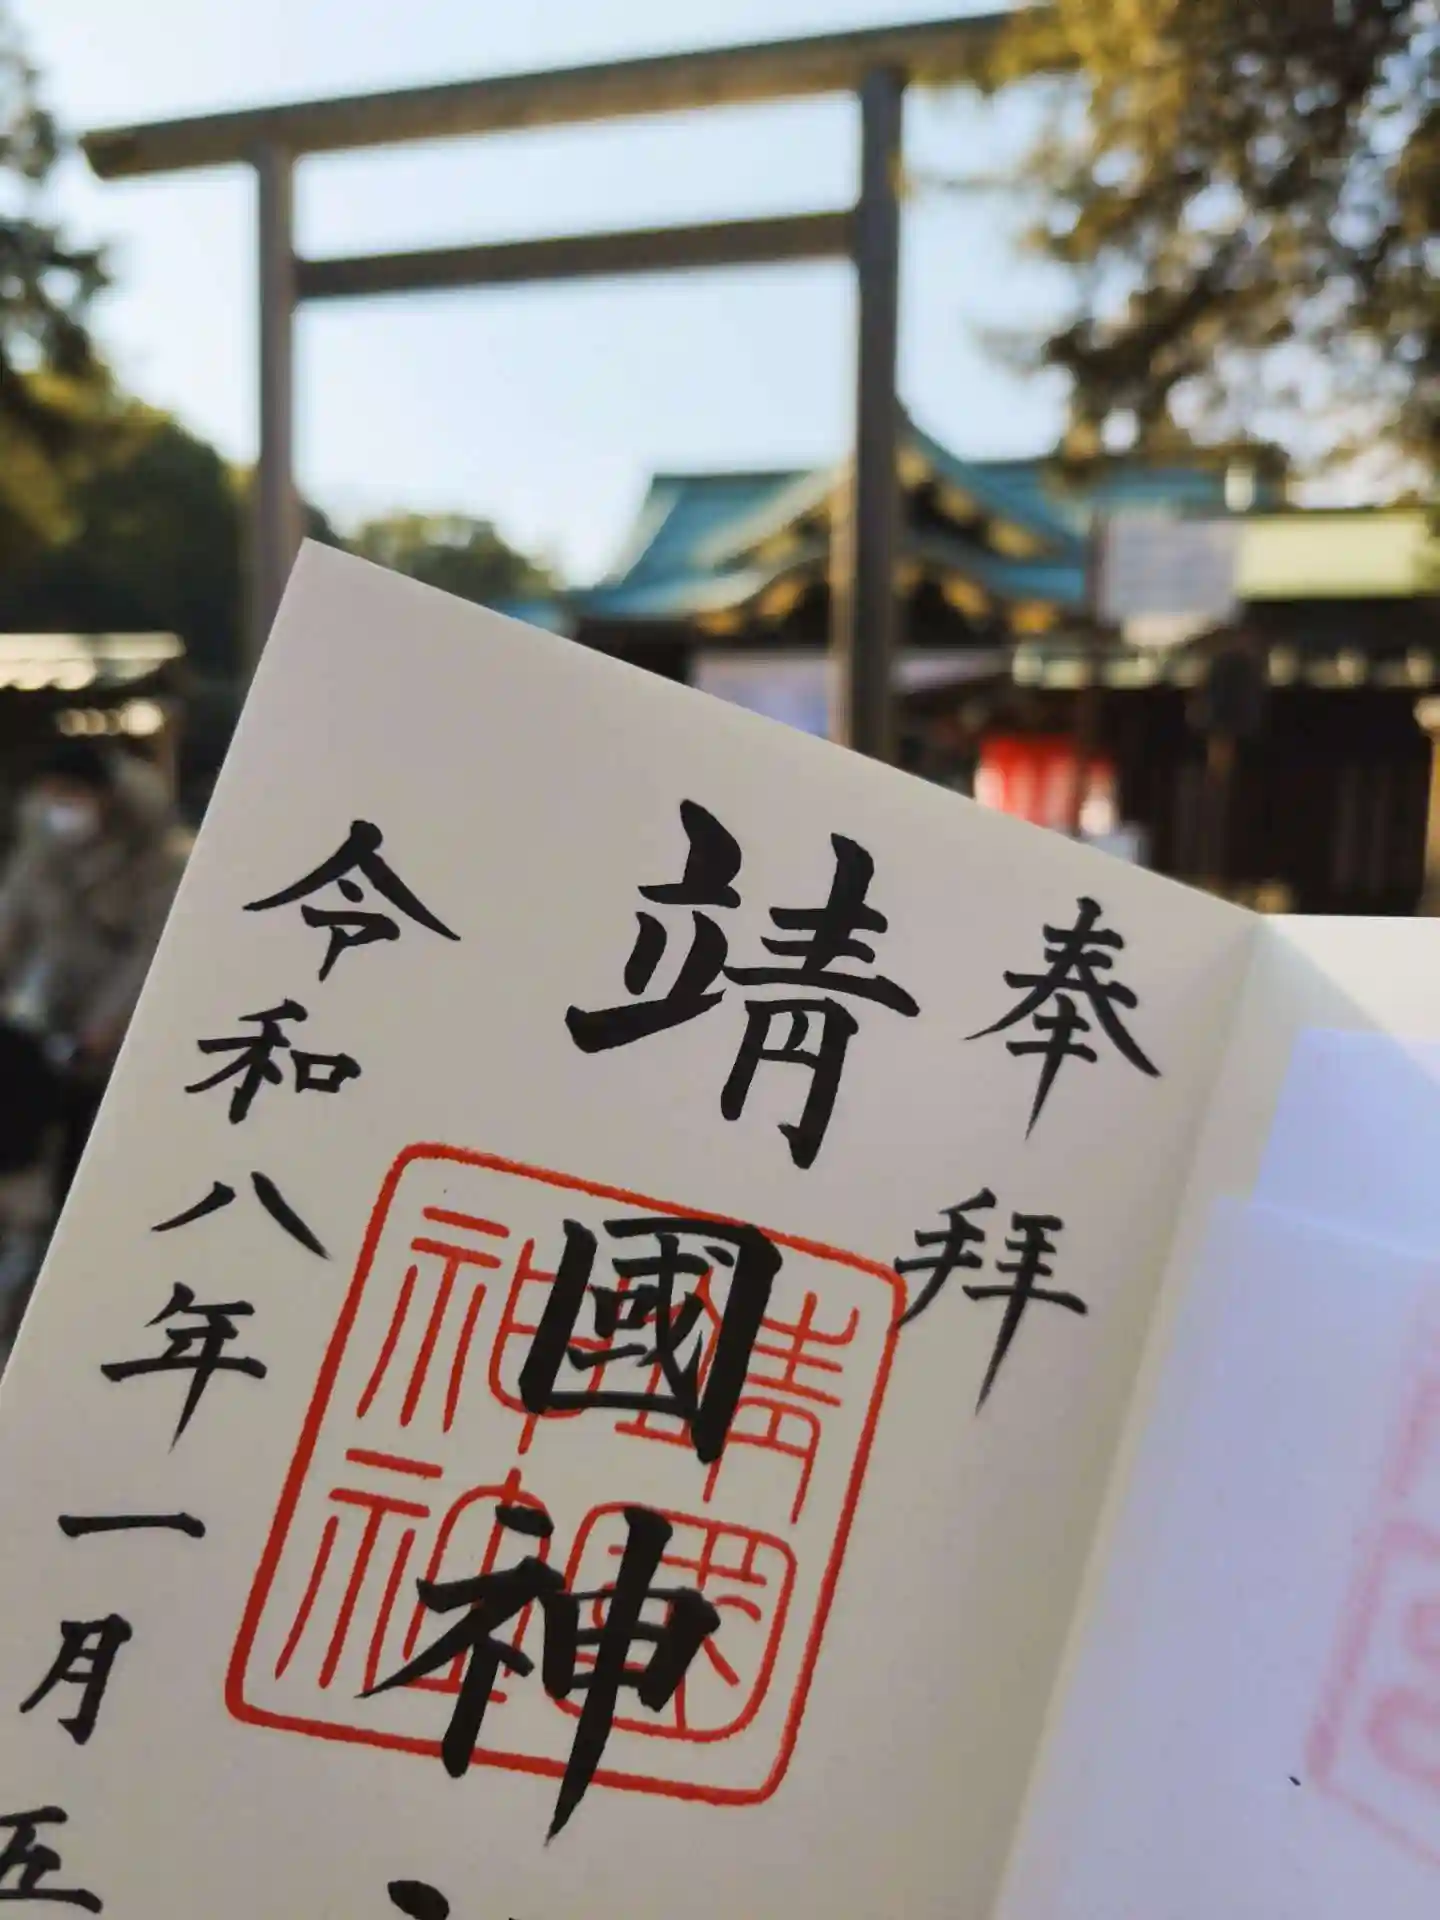 奉拝
靖國神
靖國
神社
令和八年一月五